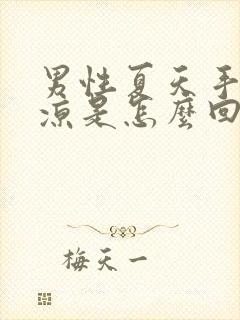 男性夏天手
涼是怎麼回
梅天一